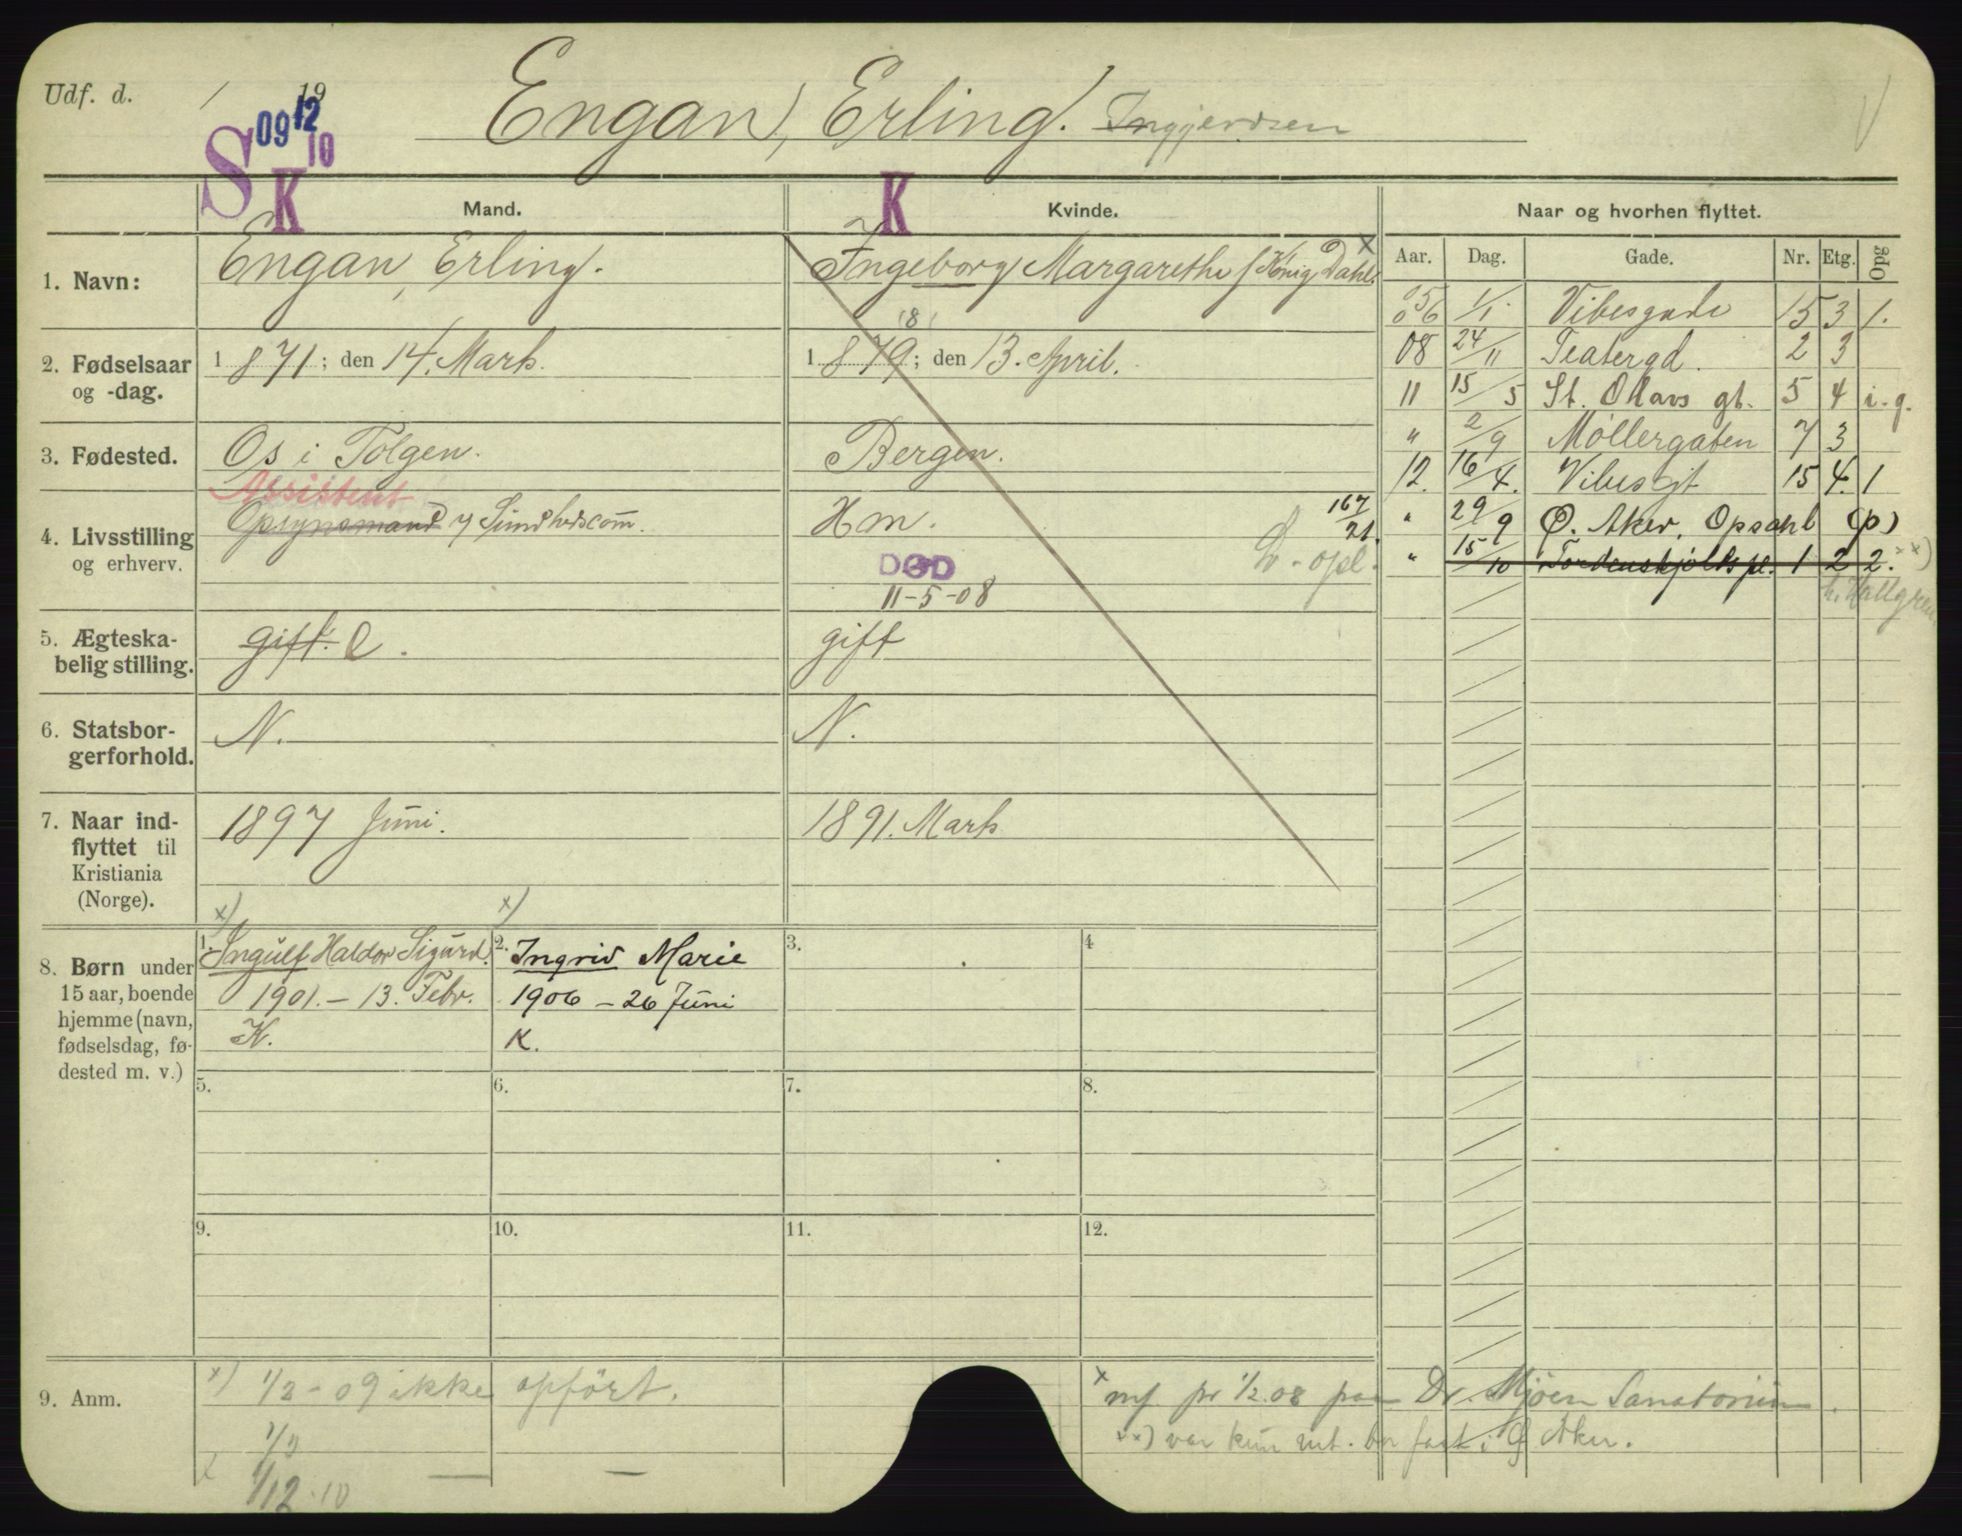 Udf. d. / 19
Engan, Erling. Ingjerdsen
S 09 12 10
K K
Mand. Kvinde. Naar og hvorhen flyttet.
Aar. Dag. Gade. Nr. Etg. Opg
1. Navn: Engan, Erling. Ingeborg Margarethe f. König Dahl. x
2. Fødselsaar og -dag. 1871; den 14. Marts. 1879; den 13. April.
181
3. Fødested. Os i Tolgen. Bergen.
Assistent
4. Livsstilling og erhverv. Opsynsmand v/ Sundhedscom. Hm.
DØD
11-5-08
167
21.
5. Ægteska-
belig stilling. gift. e. gift
6. Statsbor-
gerforhold. N. N.
7. Naar ind-
flyttet til
Kristiania
(Norge). 1897 Juni. 1891. Marts
05 6 1/1. Vibesgade 15 3 1.
08 24/11 Teatergd. 2 3
11 15/5 St. Olavs gt. 5 4 i.g.
" 2/9 Møllergaten 7 3
12. 16/4. Vibesgt 15 4. 1
" 29/9 Ø. Aker, Opsahl (p)
" 15/10 Tordenskjolds pl. 1 2 2. xx)
h. Hallgren
8. Børn under
15 aar, boende
hjemme (navn,
fødselsdag, fø-
dested m. v.)
x) 1. Ingulf Haldor Sigurd.
1901. - 13. Febr.
K.
x) 2. Ingrid Marie
1906 - 26 Juni
K.
3. 4
5. 6. 7. 8.
9. 10. 11. 12.
9. Anm. x) 1/2 - 09 ikke opført.
1/12.10 — —
x mf pr 1/2.08 paa Dr. Mjöen Sanatorium.
xx) var kun mt. bor fast i Ø Aker.